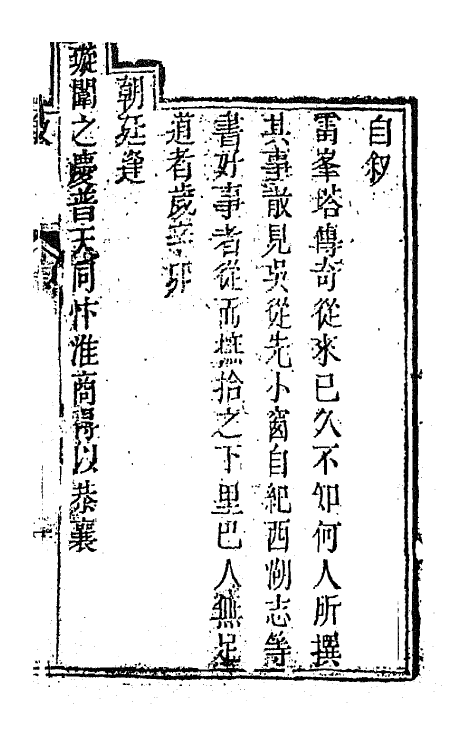 自敘
雷峯塔傳奇從來已久不知何人所撰
其事散見吳從先小窗自紀西湖志等
書好事者從而摭拾之下里巴人無足
道者歲辛卯
朝廷逢
璇闈之慶普天同忭淮商得以恭襄